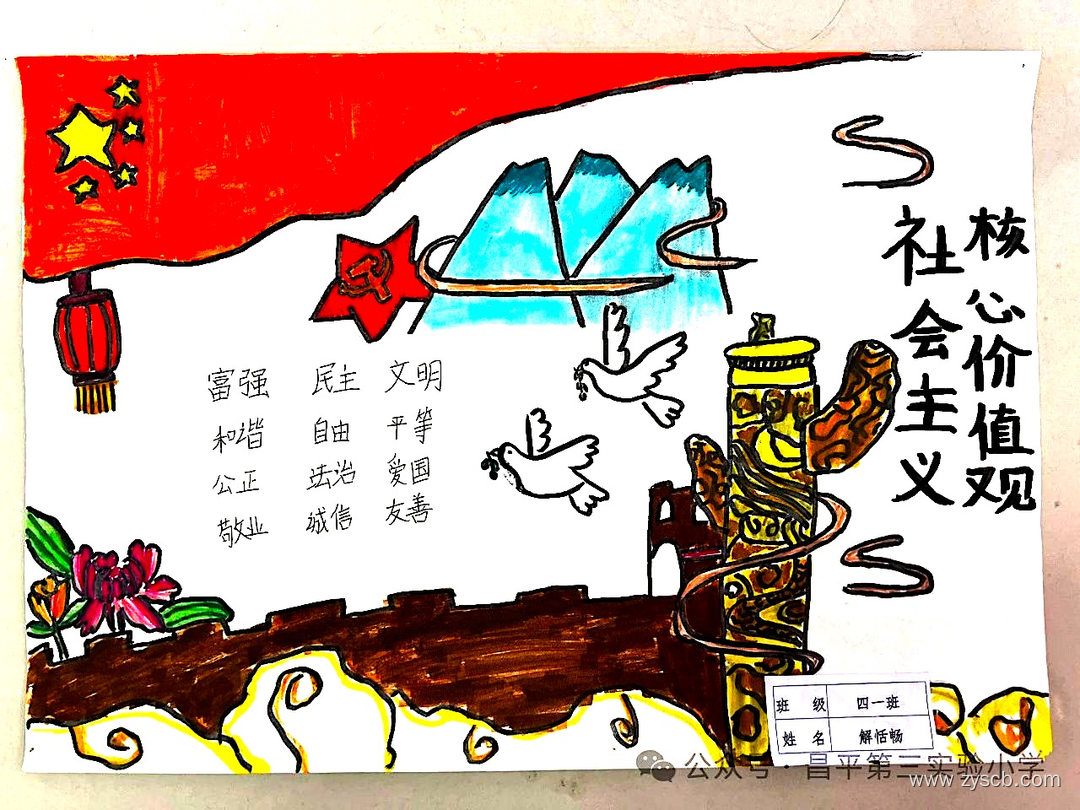 社会主义
核心价值观
富强 民主 文明
和谐 自由 平等
公正 法治 爱国
敬业 诚信 友善
班 级 四一班
姓 名 解恬畅
公众号·昌平第三实验小学
www.zyscb.com